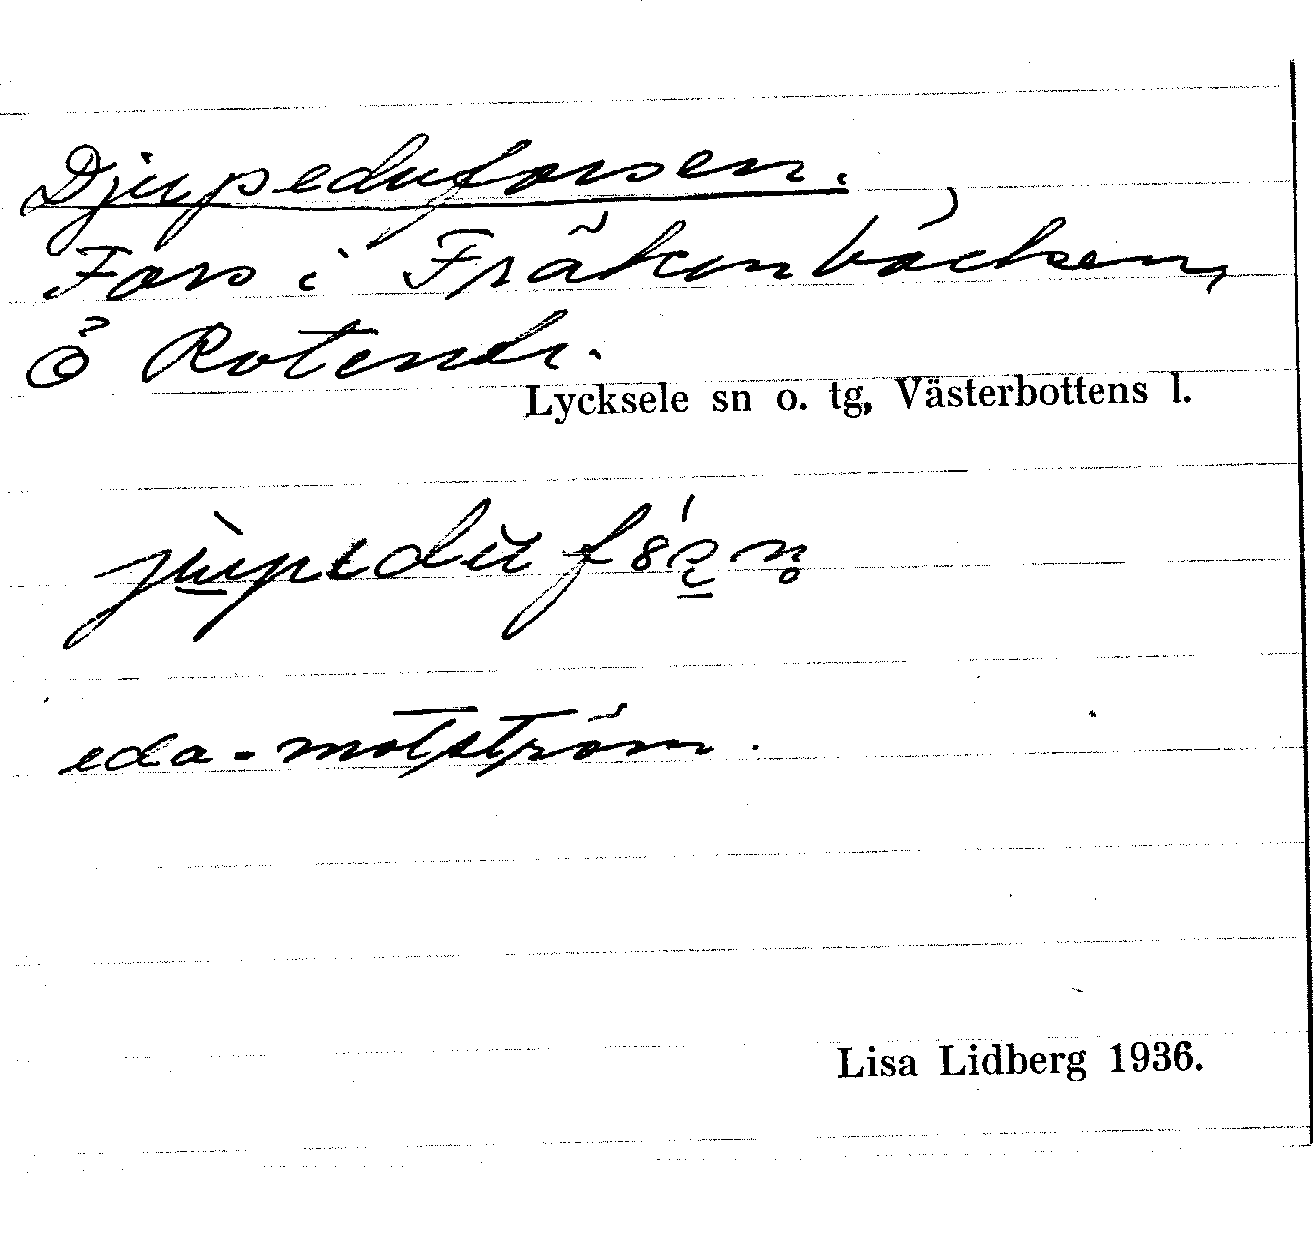 Djupeduforsen.
Fors i Fräkenbäcken,
Ö Rotenh.
Lycksele sn o. tg, Västerbottens l.
eda - motström.
Lisa Lidberg 1936.